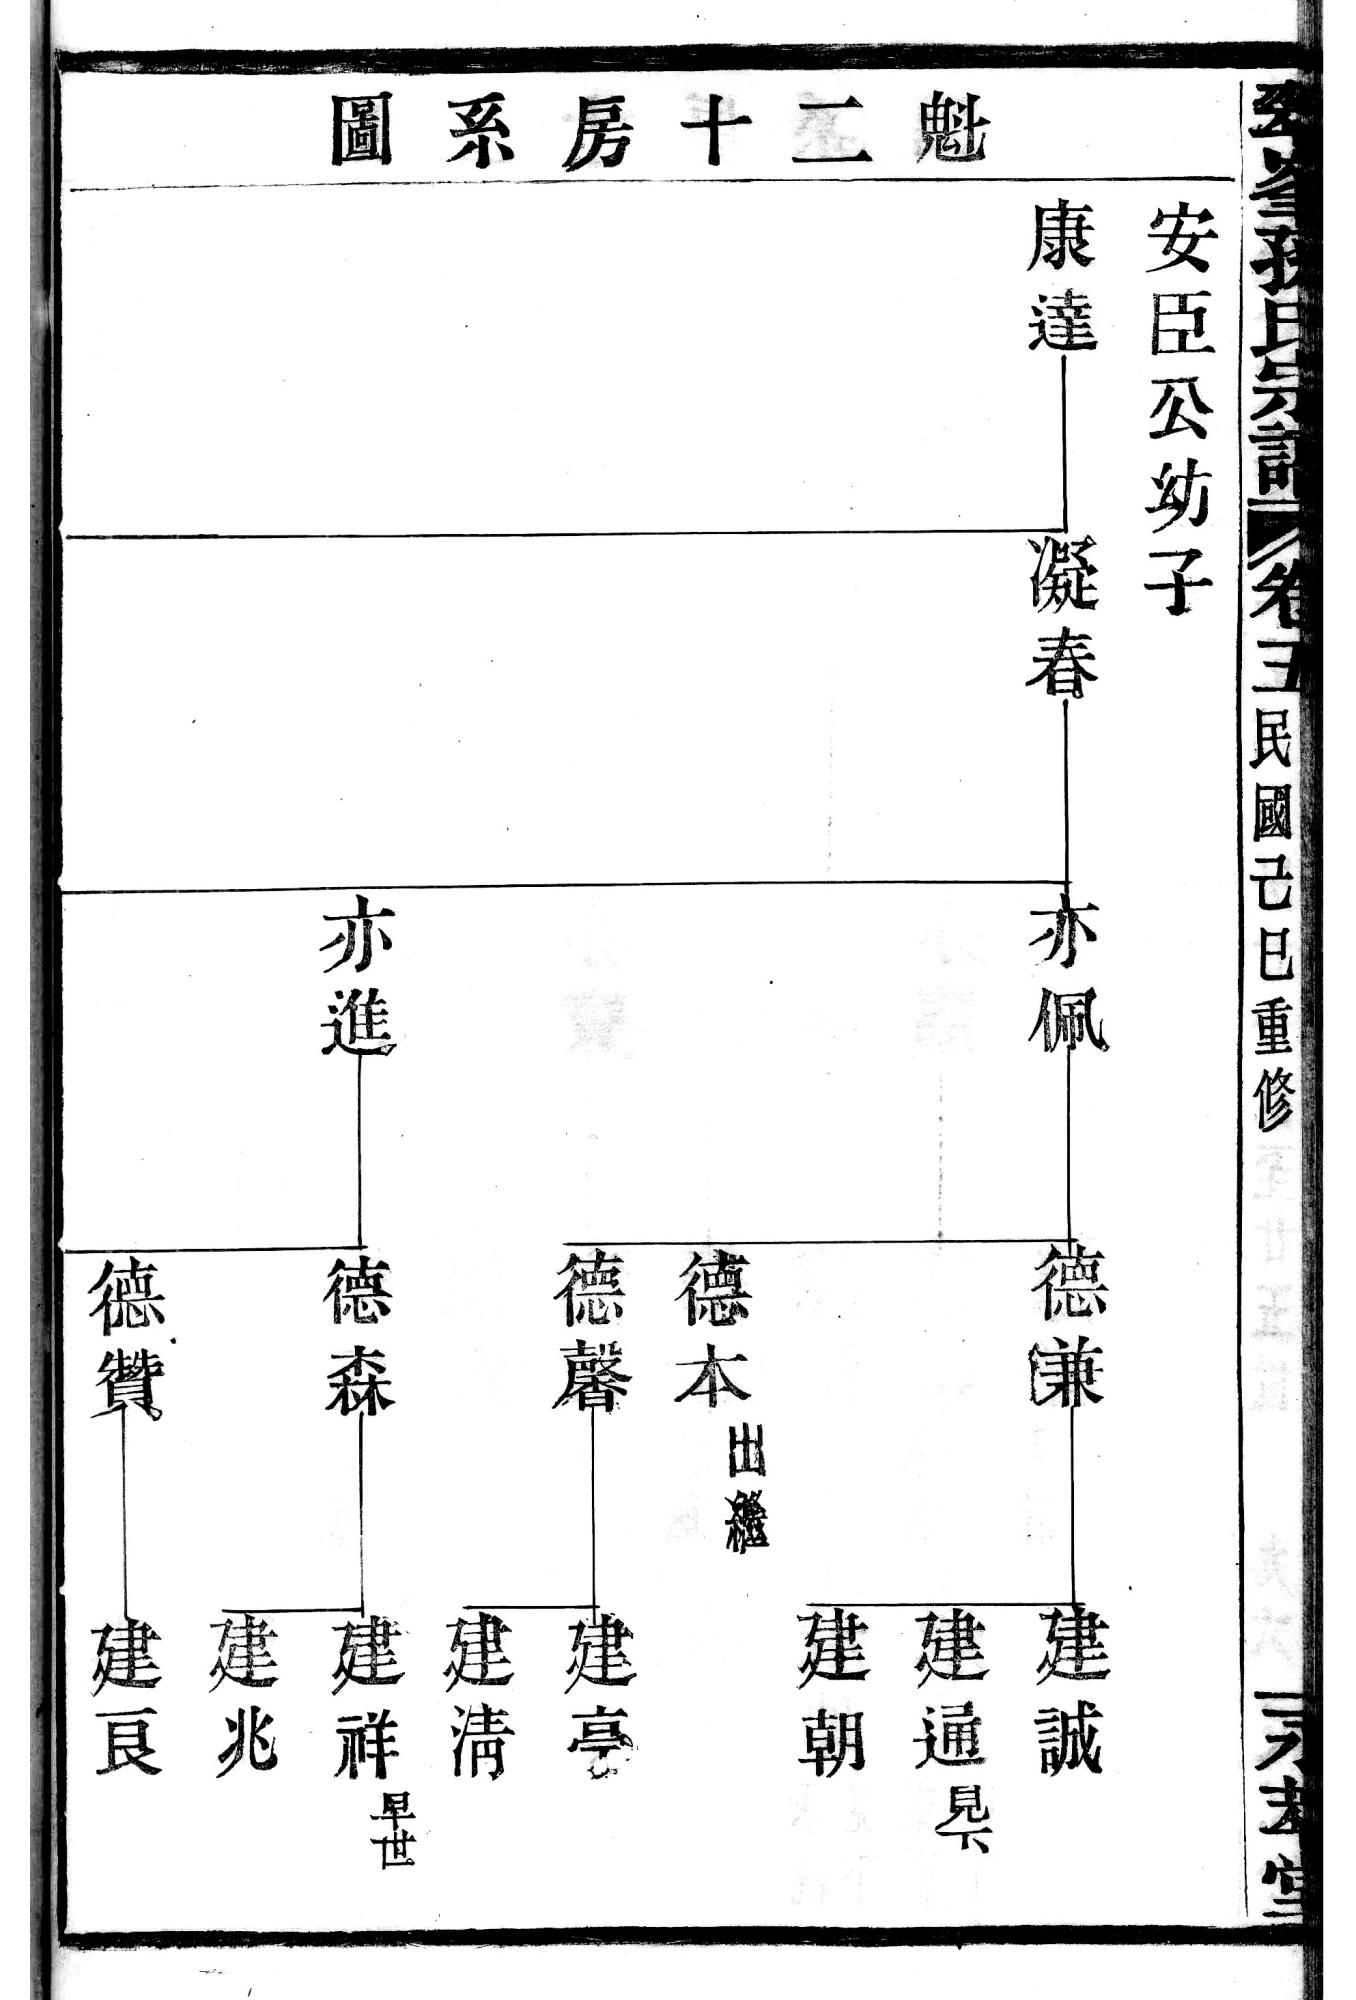 孫氏宗譜 卷五 民國己巳重修
魁二十房系圖
安臣公幼子
康達
凝春
亦佩
亦進
德謙
德本 出繼
德馨
德森
德贊
建誠
建通 見下
建朝
建亭
建淸
建祥 早世
建兆
建良